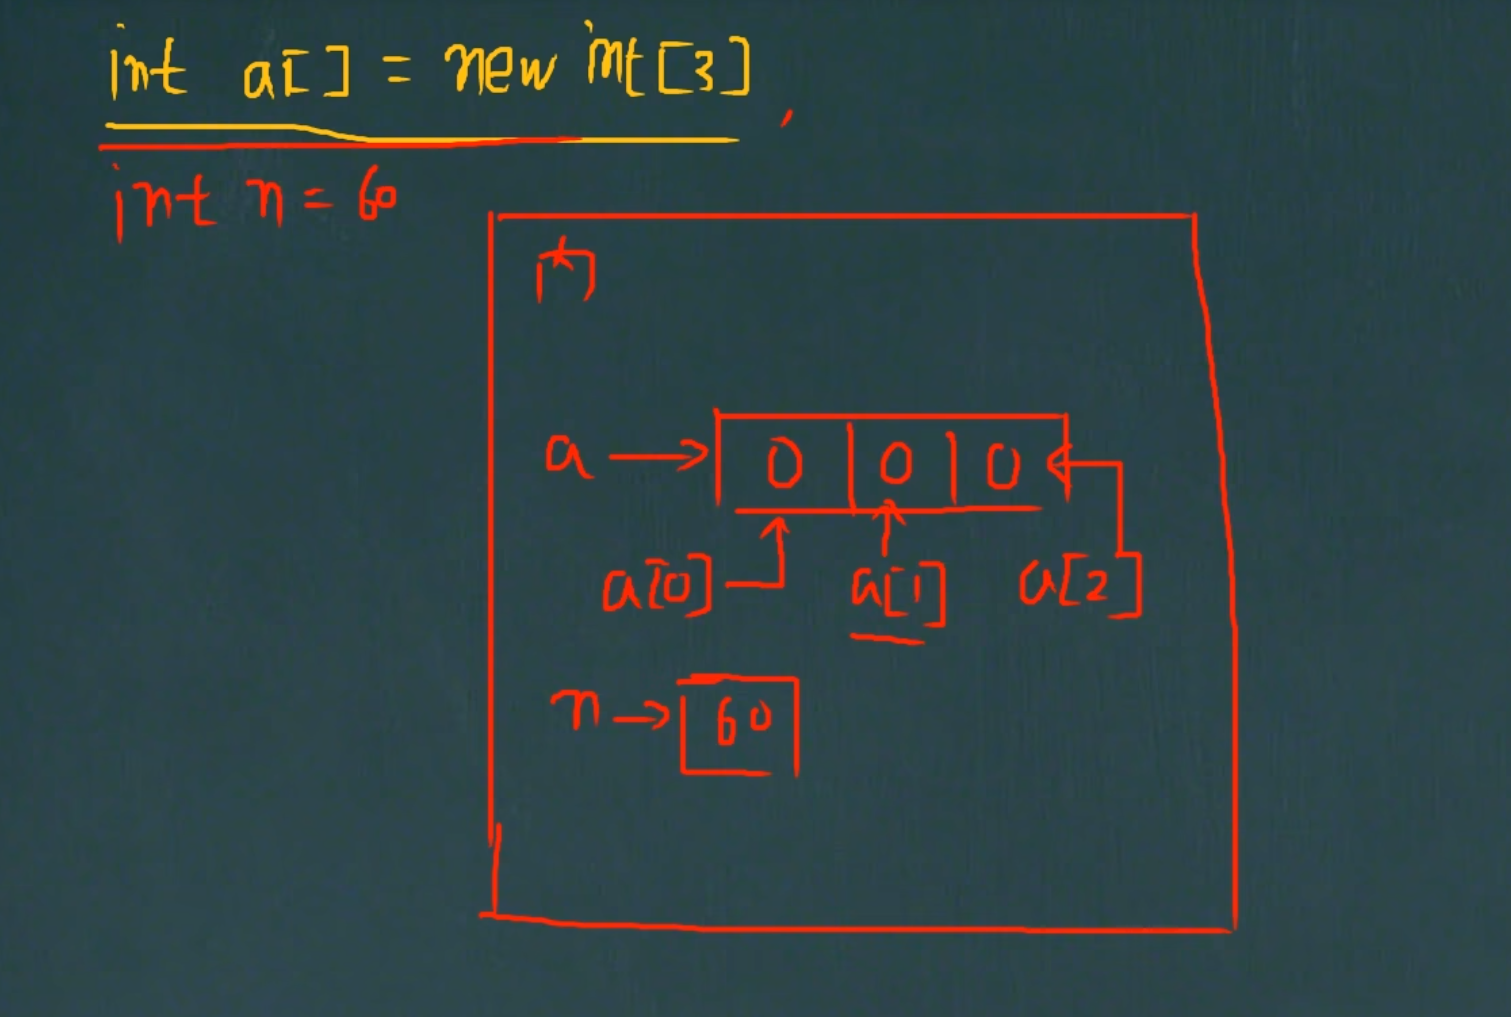 int a[] = new int[3]
int n = 60
a → 0 0 0
a[0] a[1] a[2]
n → 60